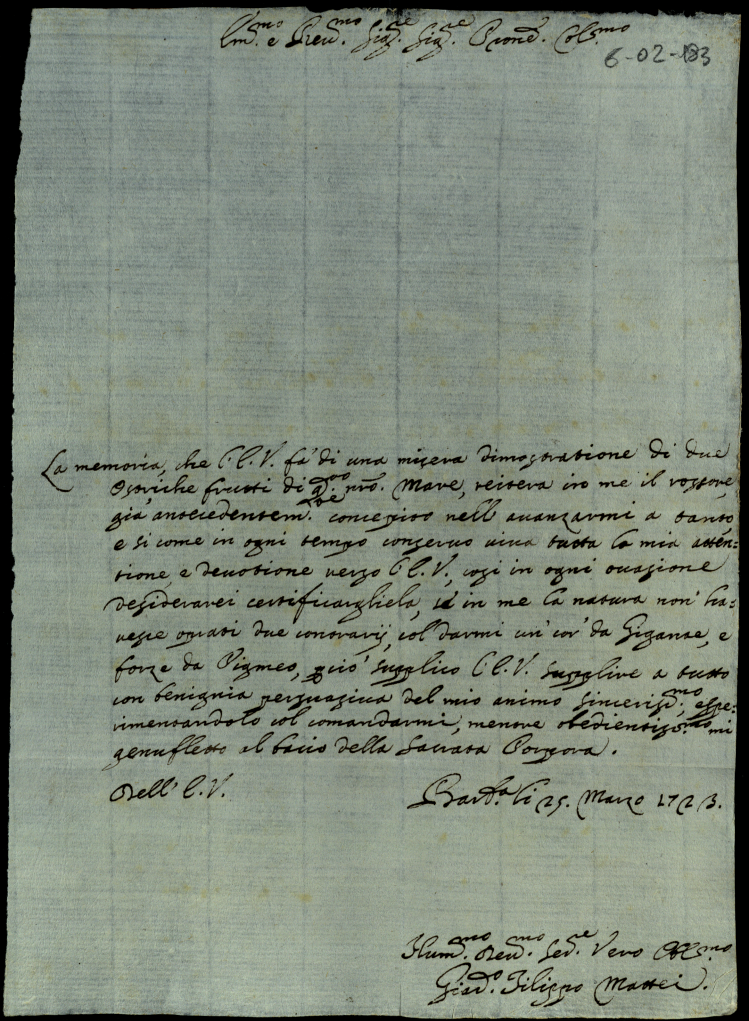 Em.mo e Reu.mo Sig.re Sig.re Prone. Col.mo
6-02-183
La memoria, che l'E.V. fa' di una misera dimostratione di due
Ostriche frutti di q.sto nro. Mare, reitera in me il rossore
già antecedentem.te concepito nell'auanzarmi a tanto
e si come in ogni tempo conseruo uiua tutta la mia atten=
tione, e deuotione verso l'E.V., cosi in ogni occasione
desiderarei certificargliela, se in me la natura non' ha=
uesse oprati due contrarij, col darmi un' cor' da Gigante, e
forze da Pigmeo, perciò supplico l'E.V. supplire a tutto
con benignia persuasiua del mio animo sinceriss.mo, espe=
rimentandolo col comandarmi, mentre obedientiss.mo mi
genufletto al bacio della sacrata Porpora.
Dell' E.V.
Barl.a li 25. Marzo 1723.
Hum.mo Deu.mo Ser.re Vero Obl.mo
Filippo Mattei.